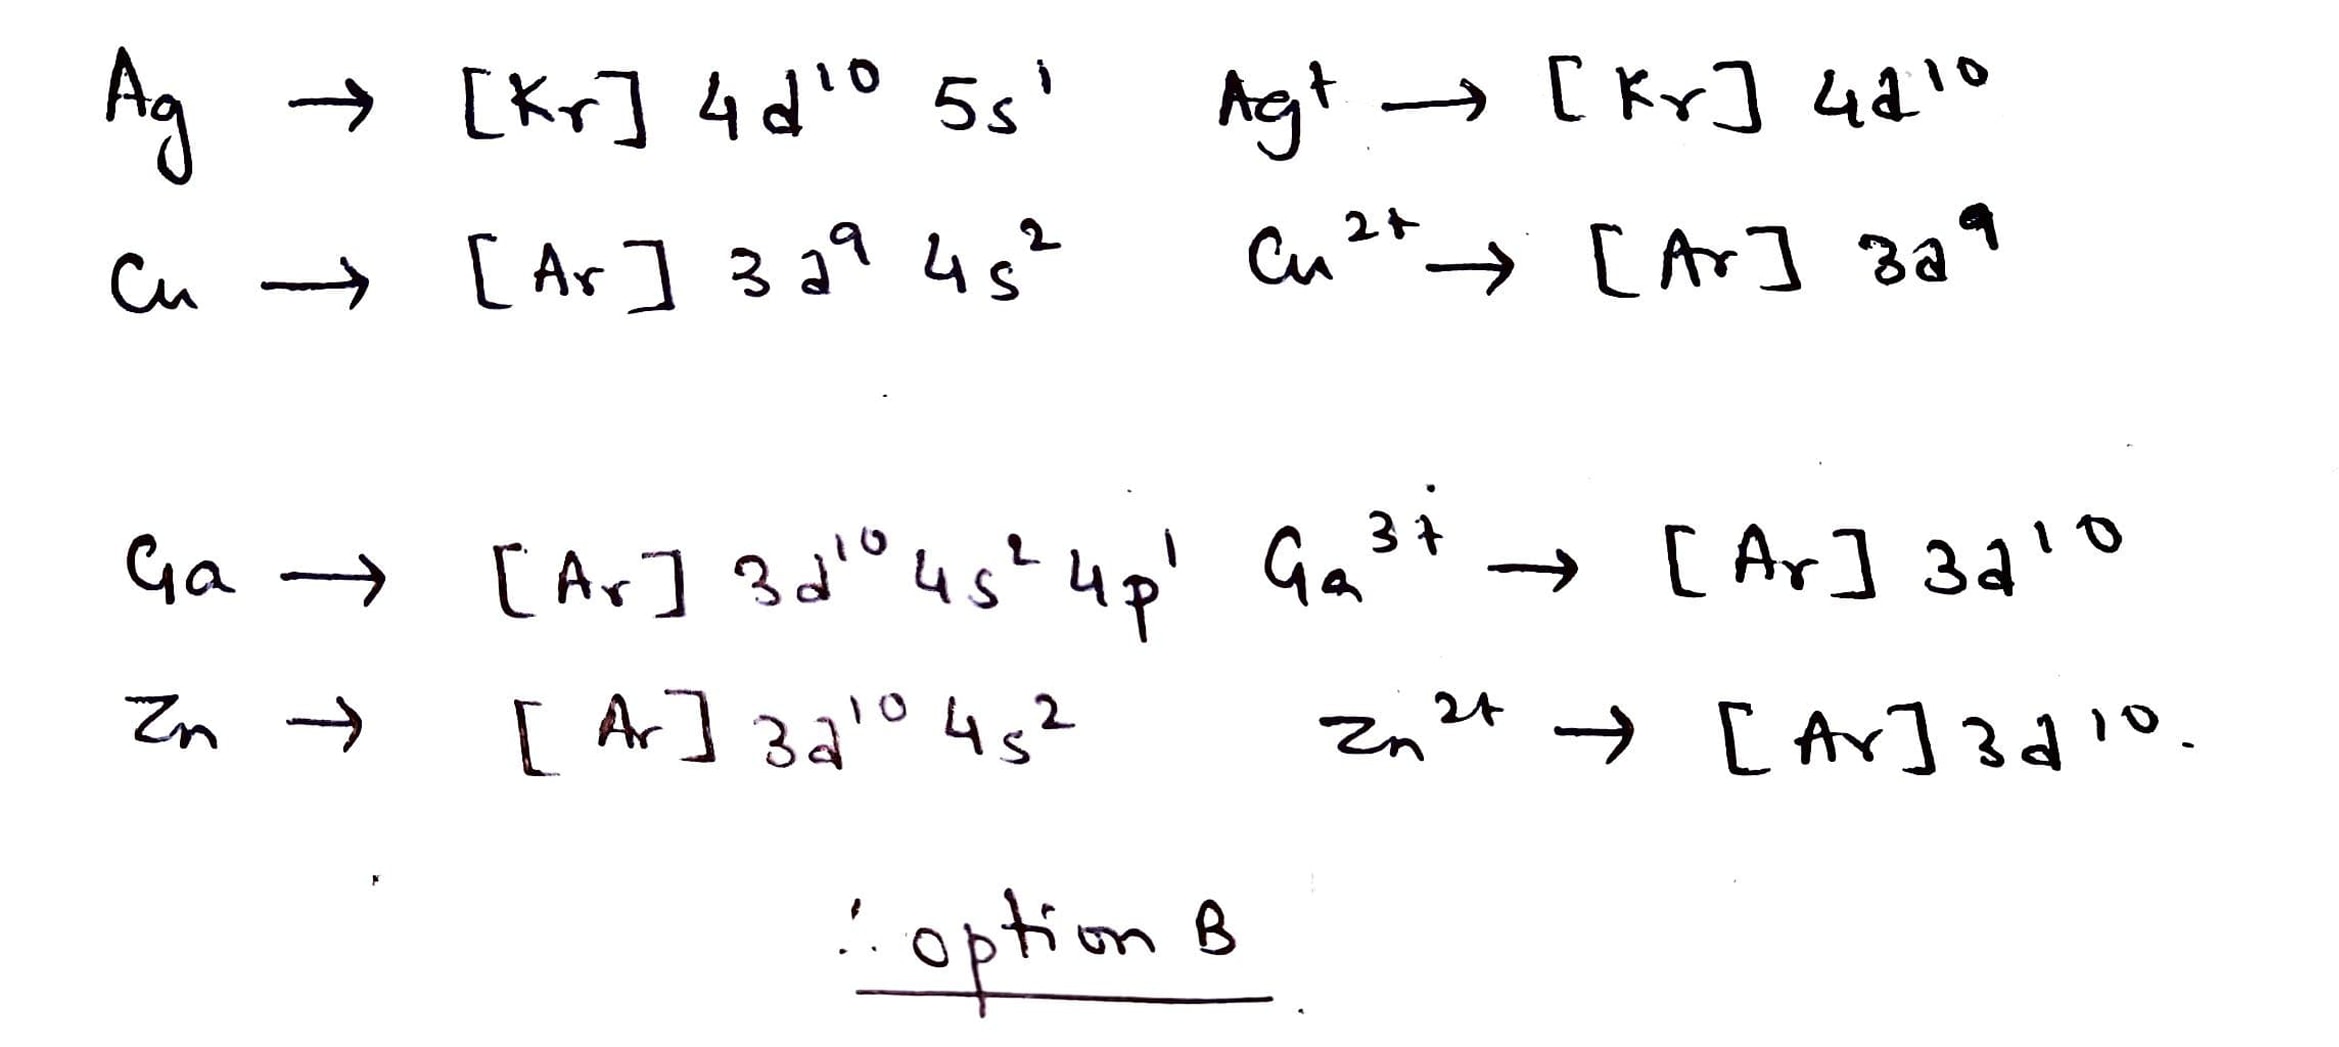 Ag → [Kr] 4d¹⁰ 5s¹ Ag⁺ → [Kr] 4d¹⁰
Cu → [Ar] 3d⁹ 4s² Cu²⁺ → [Ar] 3d⁹
Ga → [Ar] 3d¹⁰ 4s² 4p¹ Ga³⁺ → [Ar] 3d¹⁰
Zn → [Ar] 3d¹⁰ 4s² Zn²⁺ → [Ar] 3d¹⁰.
∴ option B